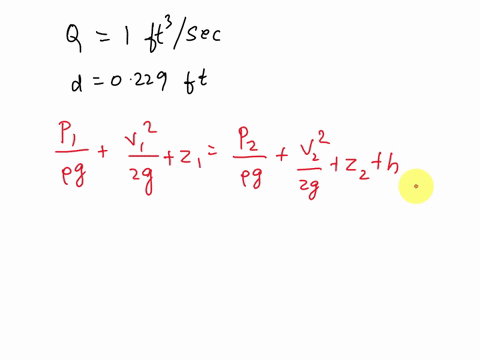 Q = 1 ft³/sec
d = 0.229 ft
P₁/ρg + v₁²/2g + z₁ = P₂/ρg + v₂²/2g + z₂ + h